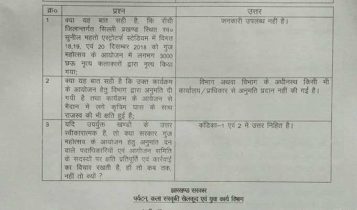 क्र० प्रश्न उत्तर
1 क्या यह बात सही है कि राँची जानकारी उपलब्ध नहीं है।
जिलान्तर्गत सिल्ली प्रखण्ड स्थित स्व०
सुनील महतो एस्ट्रोटर्फ स्टेडियम में विगत
18,19, एवं 20 दिसम्बर 2018 को गूंज
महोत्सव के आयोजन में लगभग 3000
छऊ नृत्य कलाकारों द्वारा नृत्य किया
गया;
2 क्या यह बात सही है कि उक्त कार्यक्रम विभाग अथवा विभाग के अधीनस्थ किसी भी
के आयोजन हेतु विभाग द्वारा अनुमति दी कार्यालय/प्राधिकार से अनुमति प्रदान नहीं की गई है।
गयी है तथा कार्यक्रम के आयोजन से
मैदान में लगे कृत्रिम घास के साथ
राजस्व की भी क्षति हुई है;
3 यदि उपर्युक्त खण्डों के उत्तर कंडिका-1 एवं 2 में उत्तर निहित है।
स्वीकारात्मक है, तो क्या सरकार गूंज
महोत्सव के आयोजन हेतु अनुमति देने
वाले पदाधिकारियों एवं आयोजन समिति
के सदस्यों पर क्षति प्रतिपूर्ति एवं कार्रवाई
का विचार रखती है, हाँ तो कब तक,
नहीं तो क्यों ?
झारखण्ड सरकार
पर्यटन, कला संस्कृति खेलकूद एवं युवा कार्य विभाग